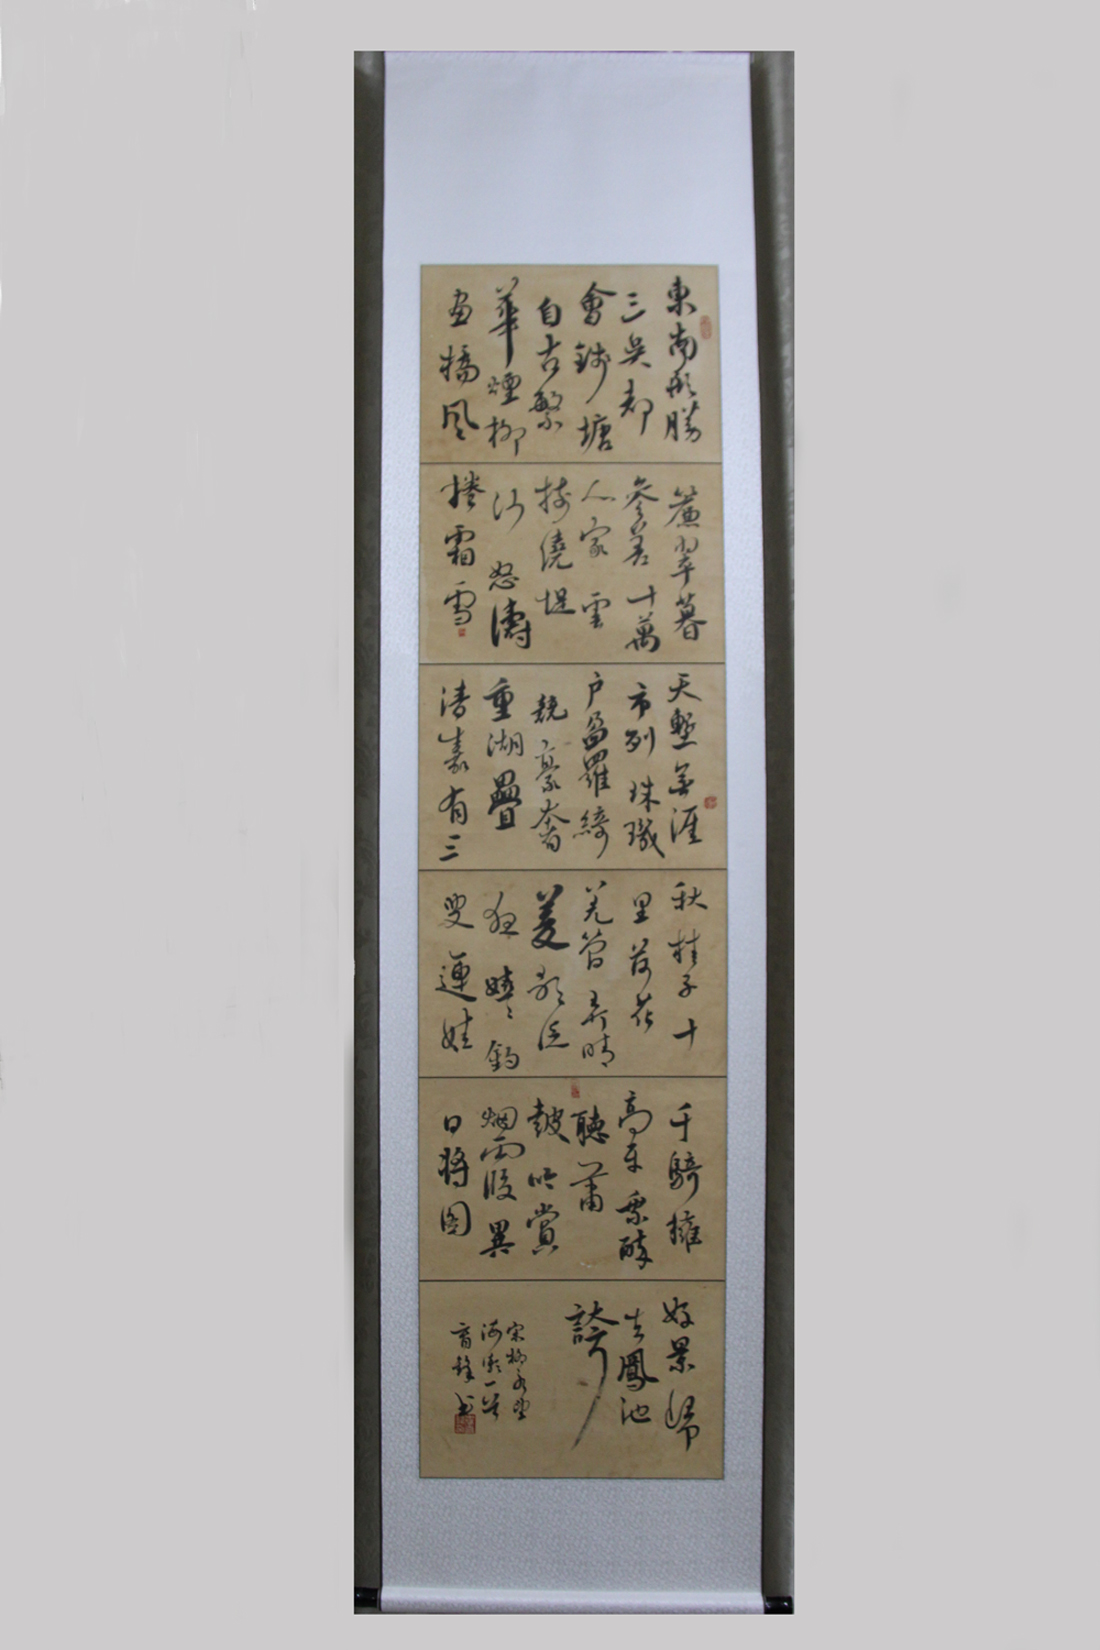 東南形勝
三吳都
會錢塘
自古繁
華煙柳
畫橋風
簾翠暮
參差十萬
人家雲
樹繞堤
沙怒濤
捲霜雪
天塹無涯
市列珠璣
戶盈羅綺
競豪奢
重湖疊
清嘉有三
秋桂子十
里荷花
羌管弄晴
菱歌泛
夜嬉〻釣
叟蓮娃
千騎擁
高牙乘醉
聽蕭
鼓吟賞
烟霞異
日將圖
好景歸
去鳳池
誇
宋柳永望
海潮一首
書